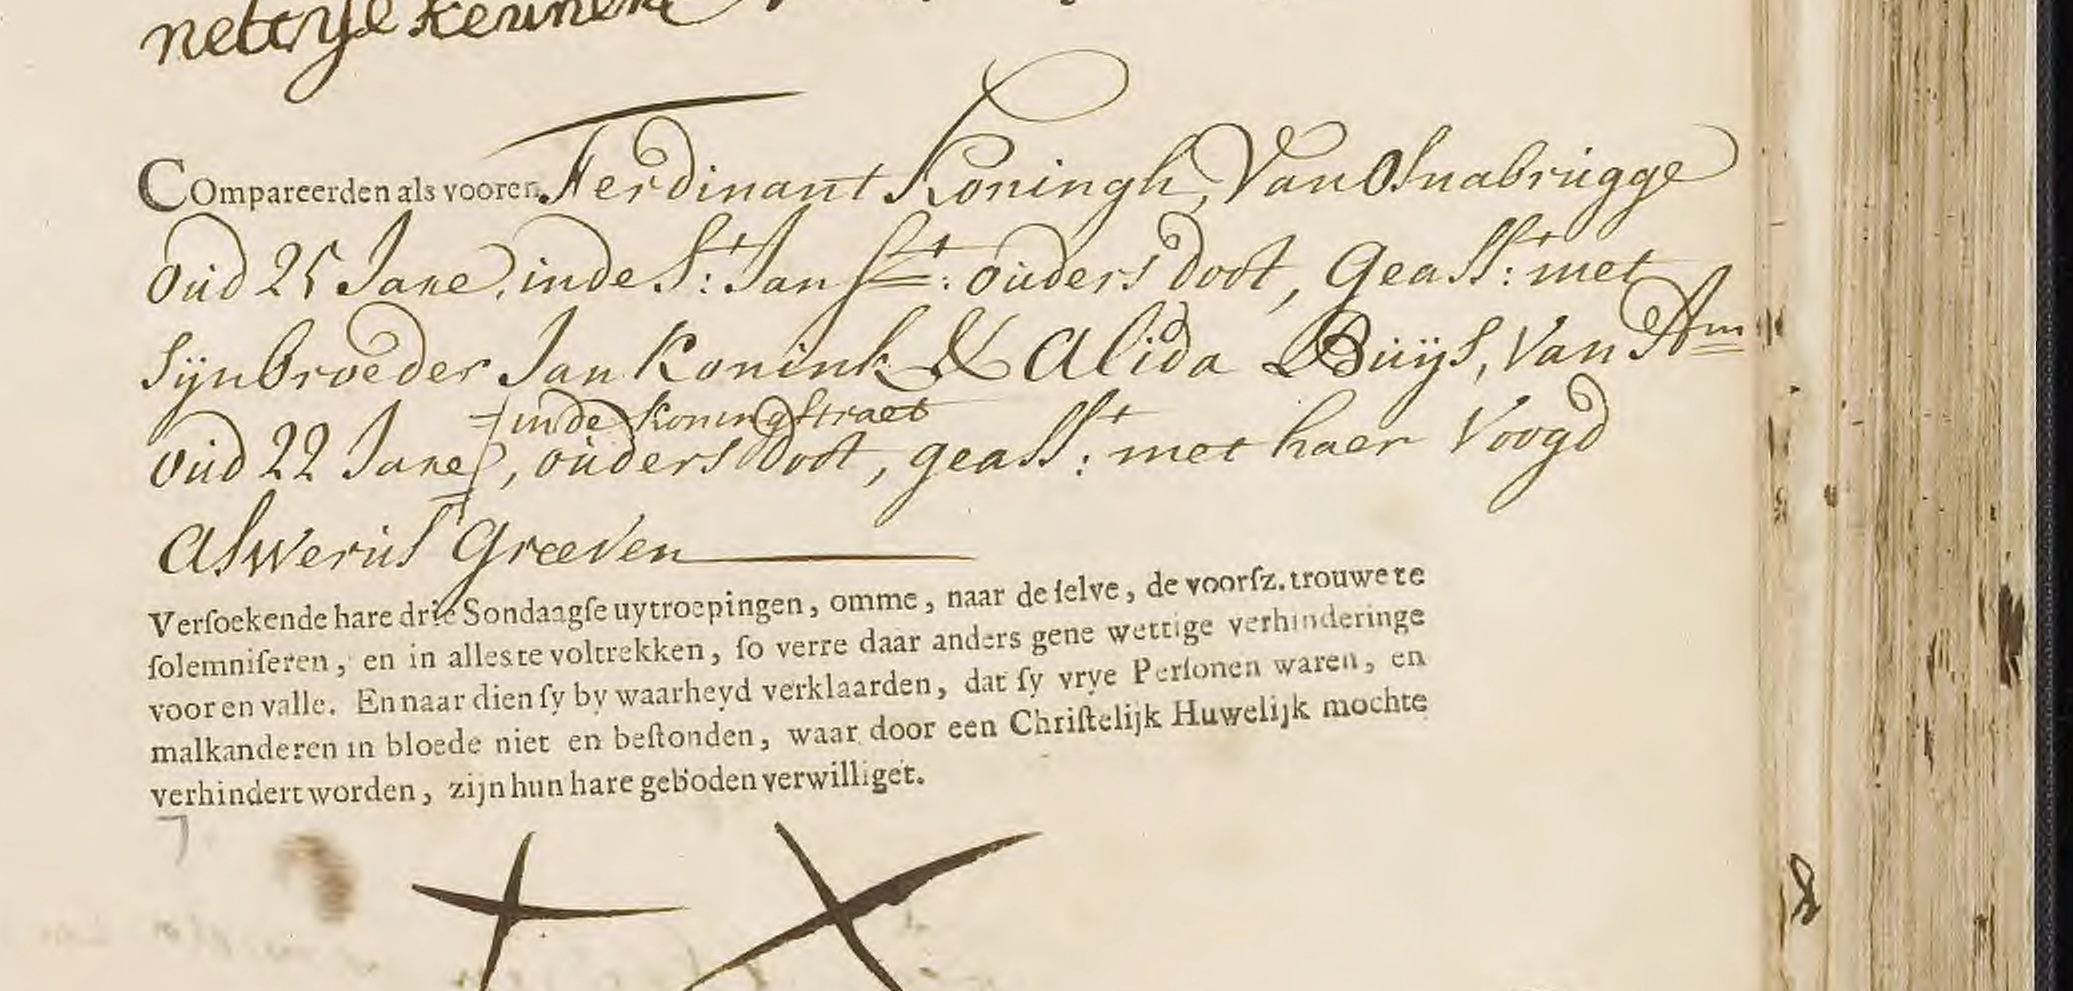 nettye kennen
Compareerden als vooren Ferdinant Koningh, Van Osnabrugge
oud 25 Jare, inde St: Jan st: ouders doot, geasst: met
syn broeder Jan Konink & Alida Buijs, Van Am
oud 22 Jare, ouders doot, geasst: met haer Voogd
inde Koningstraet
Aswerus Greeven
Verſoekende hare drie Sondaagſe uytroepingen, omme, naar de ſelve, de voorſz. trouwe te
ſolemniſeren, en in alles te voltrekken, ſo verre daar anders gene wettige verhinderinge
voor en valle. En naar dien ſy by waarheyd verklaarden, dat ſy vrye Perſonen waren, en
malkanderen in bloede niet en beſtonden, waar door een Chriſtelijk Huwelijk mochte
verhindert worden, zijn hun hare geboden verwilliget.